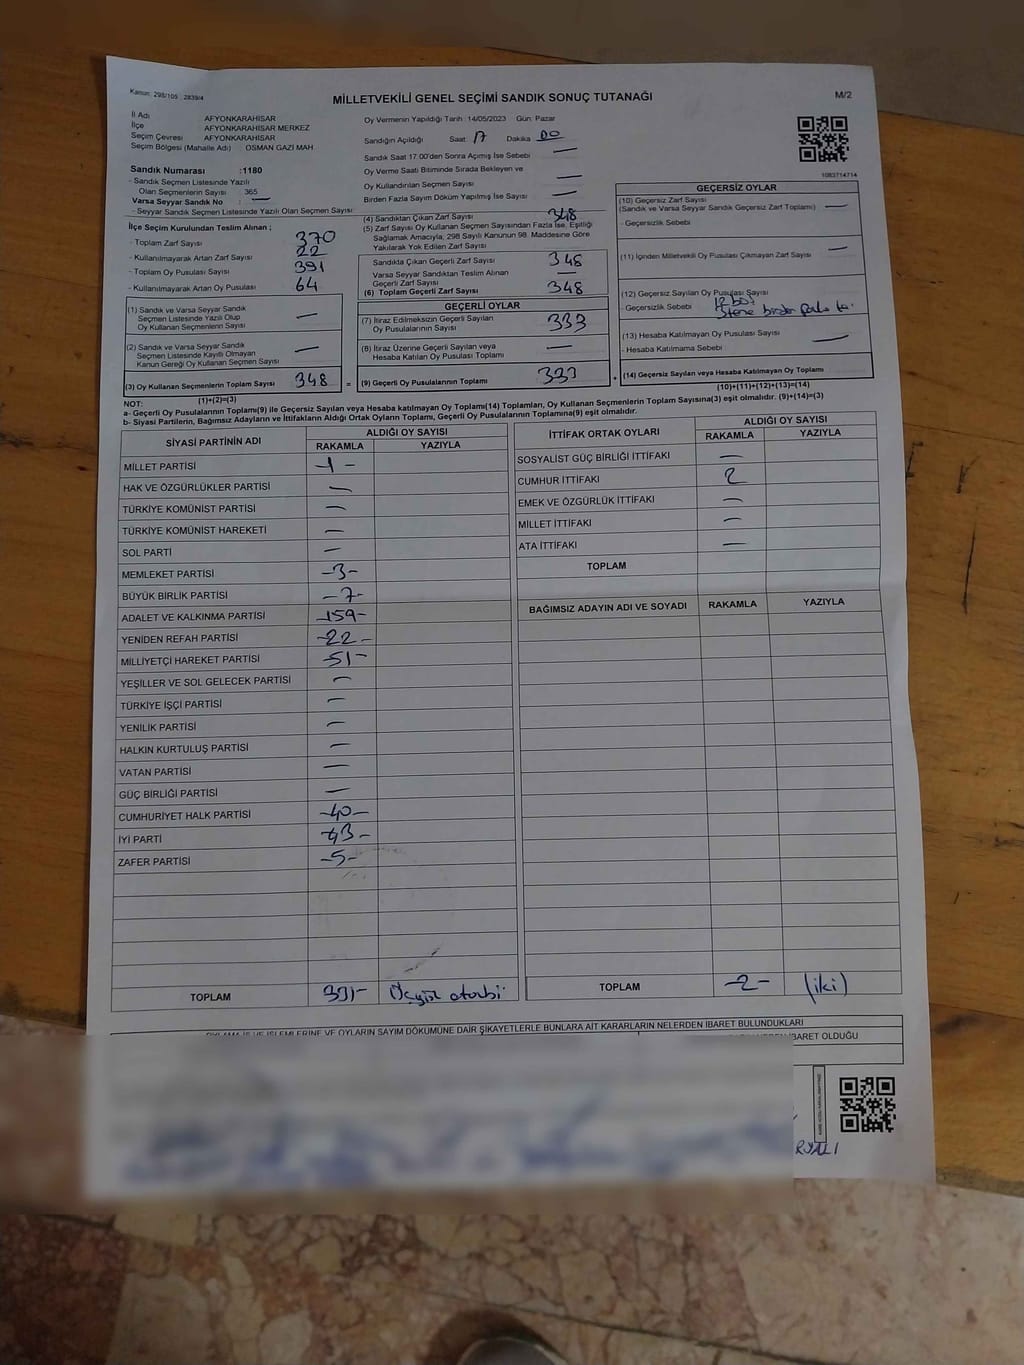 Kanun: 298/105 : 2839/4
MİLLETVEKİLİ GENEL SEÇİMİ SANDIK SONUÇ TUTANAĞI
M/2
İl Adı AFYONKARAHİSAR
İlçe AFYONKARAHİSAR MERKEZ
Seçim Çevresi AFYONKARAHİSAR
Seçim Bölgesi (Mahalle Adı) : OSMAN GAZİ MAH
Sandık Numarası :1180
- Sandık Seçmen Listesinde Yazılı
Olan Seçmenlerin Sayısı 365
Varsa Seyyar Sandık No : —
- Seyyar Sandık Seçmen Listesinde Yazılı Olan Seçmen Sayısı
İlçe Seçim Kurulundan Teslim Alınan ;
- Toplam Zarf Sayısı 370
- Kullanılmayarak Artan Zarf Sayısı 22
- Toplam Oy Pusulası Sayısı 391
- Kullanılmayarak Artan Oy Pusulası 64
(1) Sandık ve Varsa Seyyar Sandık
Seçmen Listesinde Yazılı Olup
Oy Kullanan Seçmenlerin Sayısı —
(2) Sandık ve Varsa Seyyar Sandık
Seçmen Listesinde Kayıtlı Olmayan
Kanun Gereği Oy Kullanan Seçmen Sayısı —
(3) Oy Kullanan Seçmenlerin Toplam Sayısı 348
(1)+(2)=(3)
Oy Vermenin Yapıldığı Tarih :14/05/2023 Gün: Pazar
Sandığın Açıldığı Saat: 17 Dakika 00
Sandık Saat 17.00'den Sonra Açımış İse Sebebi —
Oy Verme Saati Bitiminde Sırada Bekleyen ve
Oy Kullandırılan Seçmen Sayısı —
Birden Fazla Sayım Döküm Yapılmış İse Sayısı —
(4) Sandıktan Çıkan Zarf Sayısı 348
(5) Zarf Sayısı Oy Kullanan Seçmen Sayısından Fazla İse, Eşitliği
Sağlamak Amacıyla, 298 Sayılı Kanunun 98. Maddesine Göre
Yakılarak Yok Edilen Zarf Sayısı
Sandıkta Çıkan Geçerli Zarf Sayısı 348
Varsa Seyyar Sandıktan Teslim Alınan
Geçerli Zarf Sayısı —
(6) Toplam Geçerli Zarf Sayısı 348
GEÇERLİ OYLAR
(7) İtiraz Edilmeksizin Geçerli Sayılan
Oy Pusulalarının Sayısı 333
(8) İtiraz Üzerine Geçerli Sayılan ve
Hesaba Katılan Oy Pusulası Toplamı —
= (9) Geçerli Oy Pusulalarının Toplamı 333 +
1083714714
GEÇERSİZ OYLAR
(10) Geçersiz Zarf Sayısı
(Sandık ve Varsa Seyyar Sandık Geçersiz Zarf Toplamı) —
- Geçersizlik Sebebi
(11) İçinden Milletvekili Oy Pusulası Çıkmayan Zarf Sayısı —
(12) Geçersiz Sayılan Oy Pusulası Sayısı
- Geçersizlik Sebebi
(13) Hesaba Katılmayan Oy Pusulası Sayısı —
- Hesaba Katılmama Sebebi
(14) Geçersiz Sayılan veya Hesaba Katılmayan Oy Toplamı
(10)+(11)+(12)+(13)=(14)
NOT:
a- Geçerli Oy Pusulalarının Toplamı(9) ile Geçersiz Sayılan veya Hesaba katılmayan Oy Toplamı(14) Toplamları, Oy Kullanan Seçmenlerin Toplam Sayısına(3) eşit olmalıdır. (9)+(14)=(3)
b- Siyasi Partilerin, Bağımsız Adayların ve İttifakların Aldığı Ortak Oyların Toplamı, Geçerli Oy Pusulalarının Toplamına(9) eşit olmalıdır.
SİYASİ PARTİNİN ADI ALDIĞI OY SAYISI
RAKAMLA YAZIYLA
MİLLET PARTİSİ -1-
HAK VE ÖZGÜRLÜKLER PARTİSİ —
TÜRKİYE KOMÜNİST PARTİSİ —
TÜRKİYE KOMÜNİST HAREKETİ —
SOL PARTİ —
MEMLEKET PARTİSİ -3-
BÜYÜK BİRLİK PARTİSİ -7-
ADALET VE KALKINMA PARTİSİ -159-
YENİDEN REFAH PARTİSİ -22-
MİLLİYETÇİ HAREKET PARTİSİ -51-
YEŞİLLER VE SOL GELECEK PARTİSİ —
TÜRKİYE İŞÇİ PARTİSİ —
YENİLİK PARTİSİ —
HALKIN KURTULUŞ PARTİSİ —
VATAN PARTİSİ —
GÜÇ BİRLİĞİ PARTİSİ —
CUMHURİYET HALK PARTİSİ -40-
İYİ PARTİ -43-
ZAFER PARTİSİ -5-
TOPLAM 331-
İTTİFAK ORTAK OYLARI ALDIĞI OY SAYISI
RAKAMLA YAZIYLA
SOSYALİST GÜÇ BİRLİĞİ İTTİFAKI —
CUMHUR İTTİFAKI 2
EMEK VE ÖZGÜRLÜK İTTİFAKI —
MİLLET İTTİFAKI —
ATA İTTİFAKI —
TOPLAM
BAĞIMSIZ ADAYIN ADI VE SOYADI RAKAMLA YAZIYLA
TOPLAM -2- (iki)
OYLAMA İŞ VE İŞLEMLERİNE VE OYLARIN SAYIM DÖKÜMÜNE DAİR ŞİKAYETLERLE BUNLARA AİT KARARLARIN NELERDEN İBARET BULUNDUKLARI
İBARET OLDUĞU